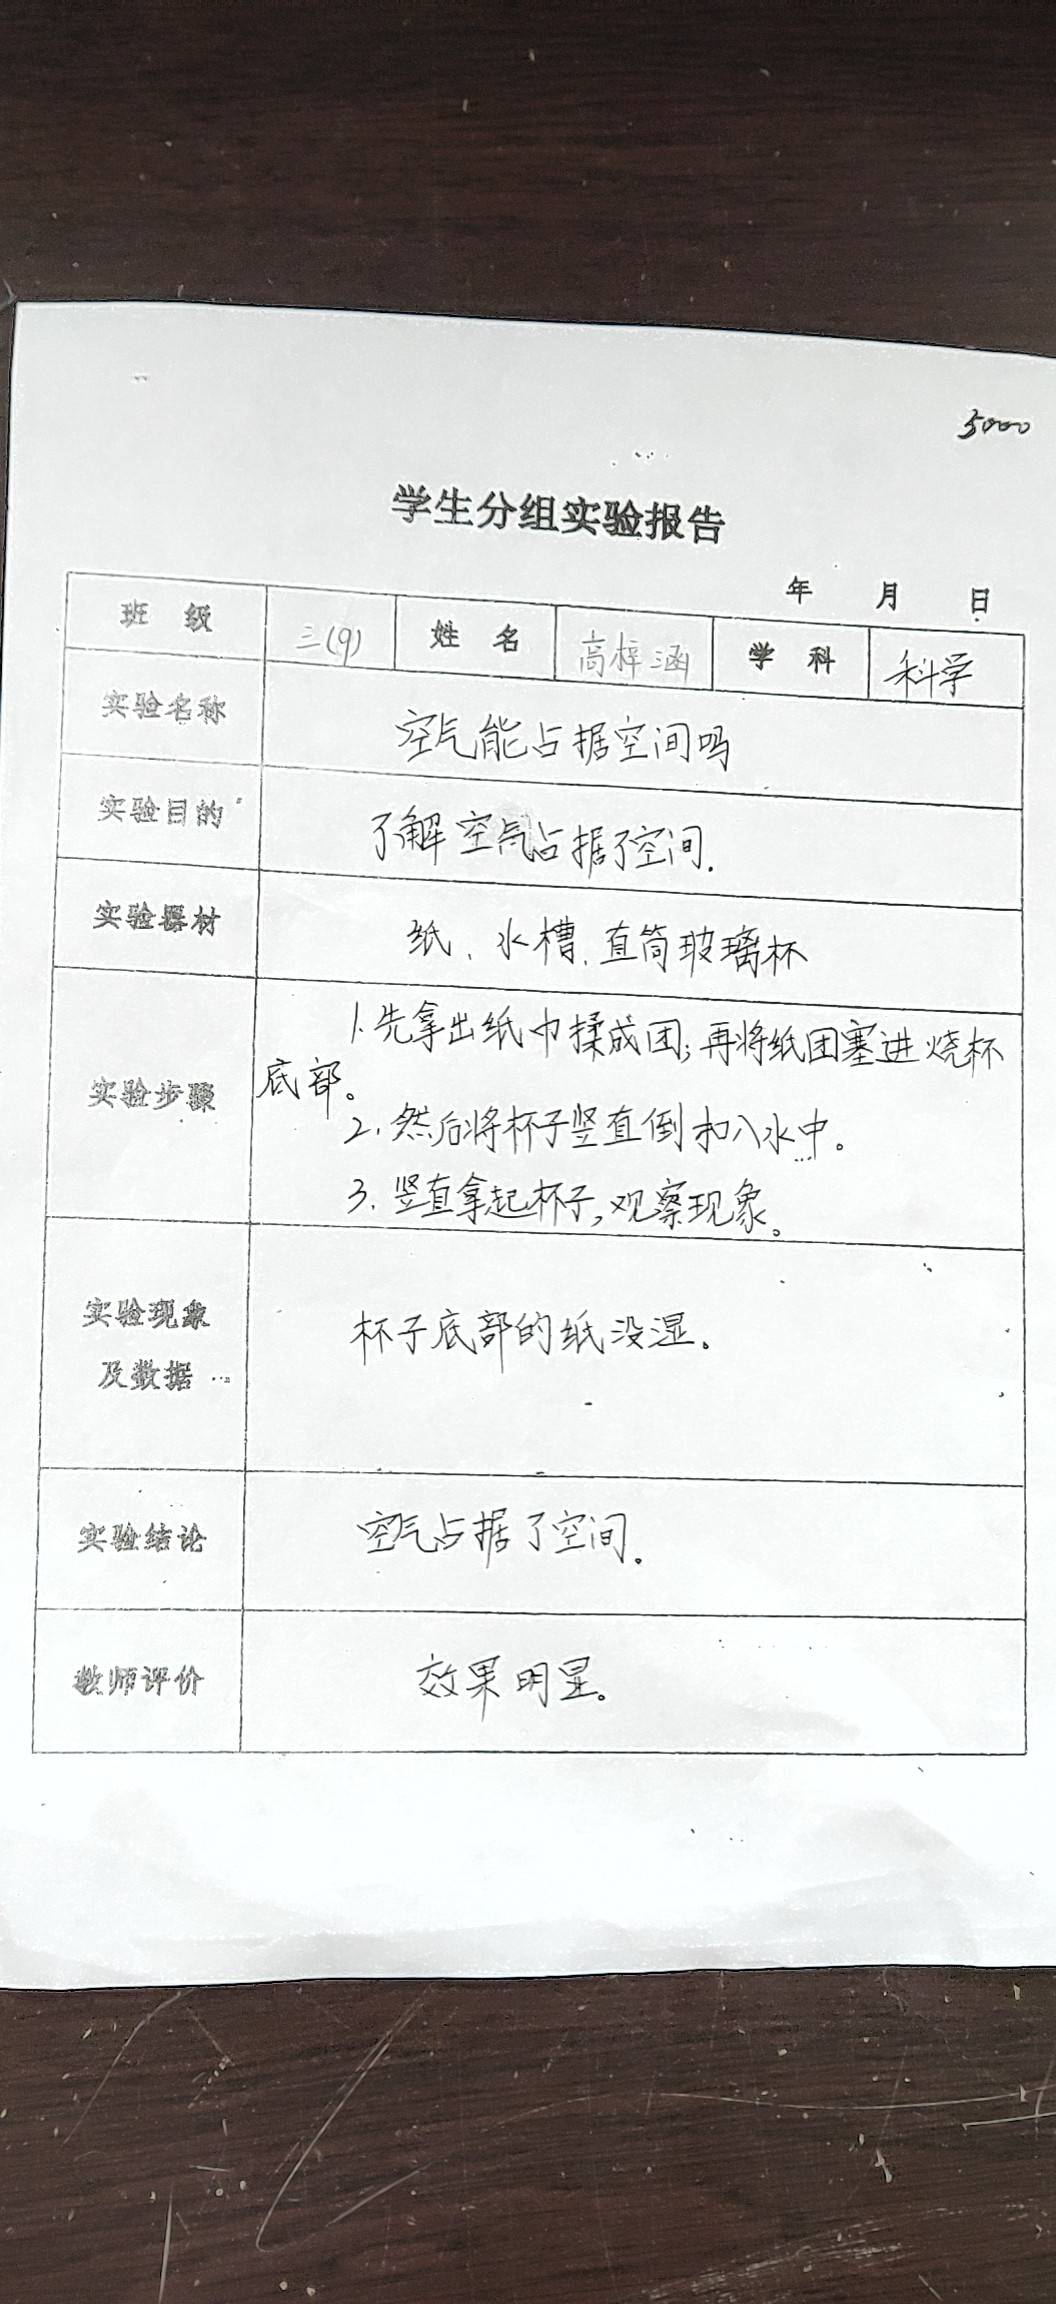 5000
学生分组实验报告
年 月 日
班 级 三(9) 姓 名 高梓涵 学 科 科学
实验名称 空气能占据空间吗
实验目的 了解空气占据了空间.
实验器材 纸、水槽、直筒玻璃杯
1.先拿出纸巾揉成团;再将纸团塞进烧杯
底部。
实验步骤
2.然后将杯子竖直倒扣入水中。
3.竖直拿起杯子,观察现象。
实验现象
及数据
杯子底部的纸没湿。
实验结论 空气占据了空间.
教师评价 效果明显。